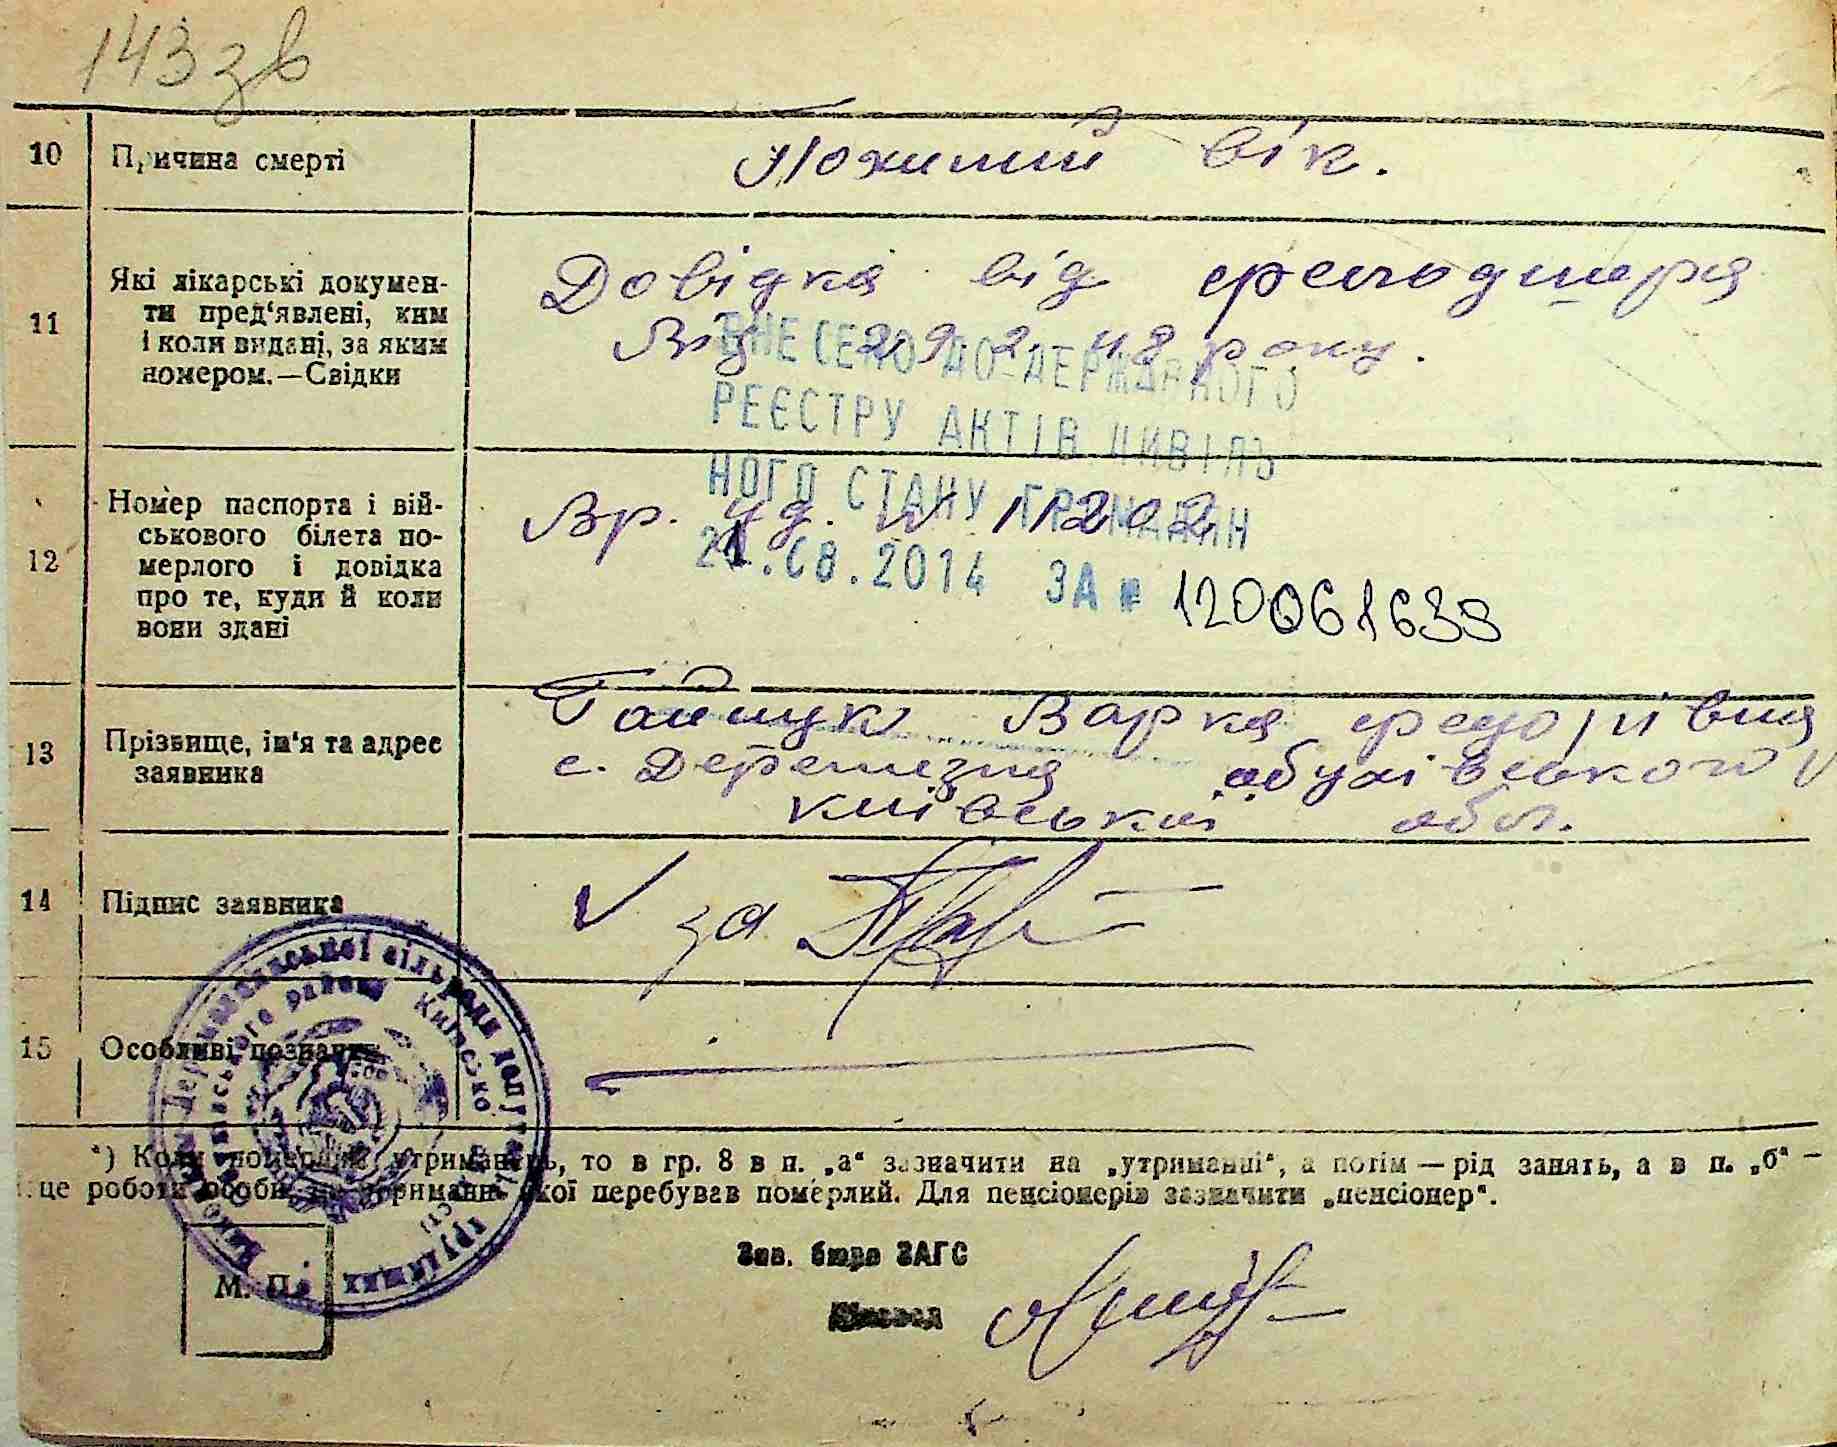 143зв
10 Причина смерті Похилий вік.
11 Які лікарські докумен-
ти пред'явлені, ким
і коли видані, за яким
номером.—Свідки
Довідка від фельдшера
Від 29.2.48 року.
ВНЕСЕНО ДО ДЕРЖАВНОГО
РЕЄСТРУ АКТІВ ЦИВІЛЬ
НОГО СТАНУ ГРОМАДЯН
21.08.2014 ЗА № 120061639
12 Номер паспорта і вій-
ськового білета по-
мерлого і довідка
про те, куди й коли
вони здані
Вр. уд. № 11202
13 Прізвище, ім'я та адрес
заявника
Варка Федорівна
с. Деремезна обухівського
київської обл.
14 Підпис заявника
за
15 Особливі позначки
*) Коли померлий утриманець, то в гр. 8 в п. „а“ зазначити на „утриманні“, а потім — рід занять, а в п. „б“ —
це роботи особи, на утриманні якої перебував померлий. Для пенсіонерів зазначити „пенсіонер“.
Зав. бюро ЗАГС
М. П.